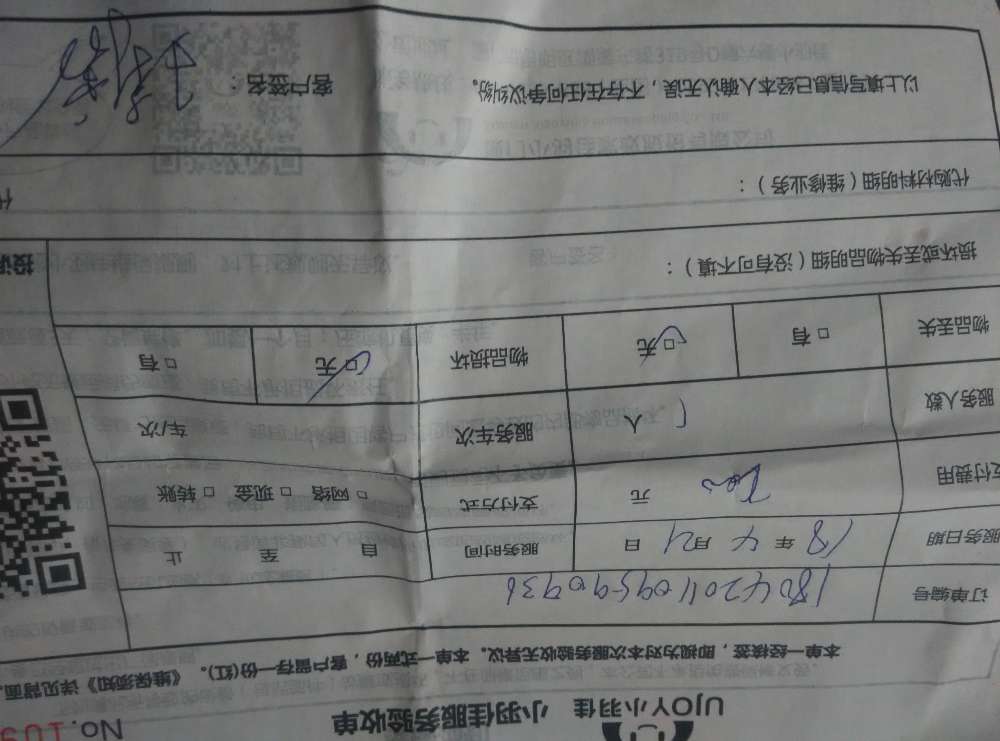 UJOY小羽佳 小羽佳服务验收单 No.
本单一经接签，即视为对本次服务验收无异议。本单一式两份，客户留存一份(红)。《维保须知》详见背面
订单编号 1804201109590936
服务日期 18年4月21日 服务时间 自 至 止
支付费用 元 支付方式 □ 网络 □ 现金 □ 转账
服务人数 1 人 服务车次 车/次
物品丢失 □ 有 □ 无 物品损坏 □ 无 □ 有
损坏或丢失物品明细（没有可不填）：
投诉
代购材料明细（维修业务）：
以上填写信息已经本人确认无误，不存在任何争议纠纷。 客户签名：